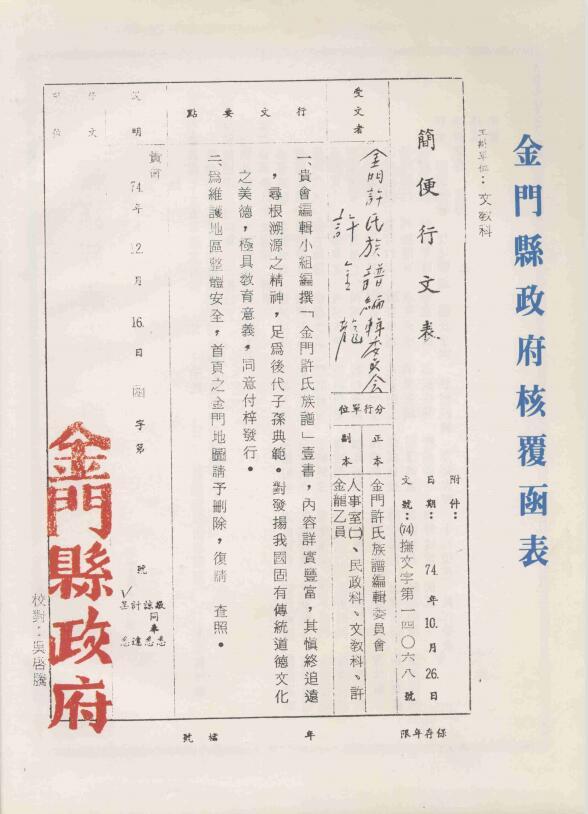 金門縣政府核覆函表
簡便行文表
主辦單位：文教科
附件：
日期：74年10月26日
文號：(74)撫文字第一四〇六八號
受文者
金門許氏族譜編輯委員會
許金龍
分行單位
正本
金門許氏族譜編輯委員會
副本
人事室㈡、民政科、文教科、許
金龍乙員
行文要點
一、貴會編輯小組編撰「金門許氏族譜」壹書，內容詳實豐富，其慎終追遠
，尋根溯源之精神，足為後代子孫典範。對發揚我國固有傳統道德文化
之美德，極具教育意義，同意付梓發行。
二、為維護地區整體安全，首頁之金門地圖請予刪除，復請　查照。
說明
貴會74年12月16日函字第　號
校對：吳啓騰
金門縣政府
保存年限
年
檔號